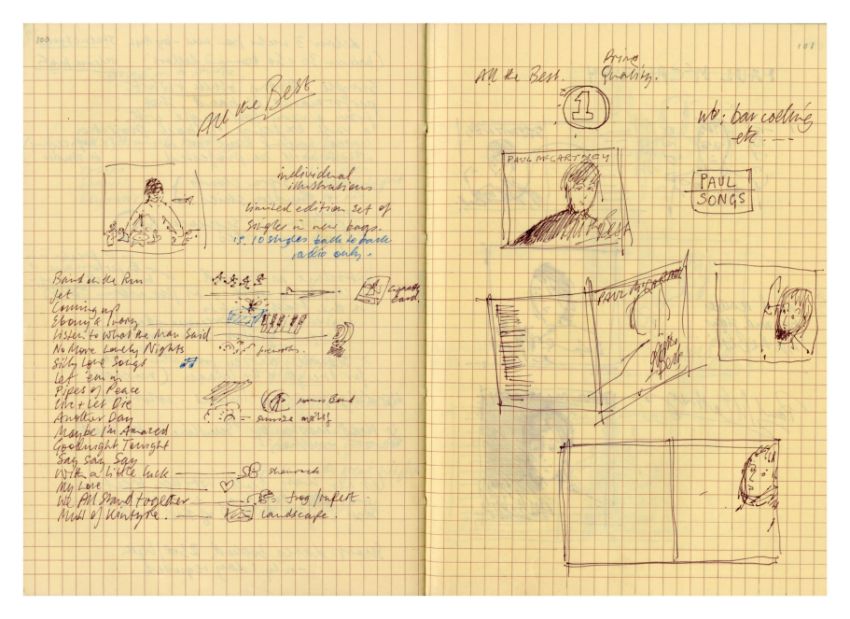 100
All the Best
individual
illustrations
limited edition set of
singles in new bags.
10 singles back to back
radio only.
Band on the Run
Jet
Coming up
Ebony & Ivory
Listen to What the Man Said
No More Lovely Nights
fireworks
Silly Love Songs
Let 'em in
Pipes of Peace
Live + Let Die
James Bond
Another Day
sunrise motif
Maybe I'm Amazed
Goodnight Tonight
Say Say Say
With a little luck
shamrock
My Love
We All Stand together
frog / rupert.
Mull of Kintyre.
landscape.
101
All the Best.
Quality.
1
nb: bar coding
etc.
PAUL McCARTNEY
Best
PAUL
SONGS
PAUL McCARTNEY
Best